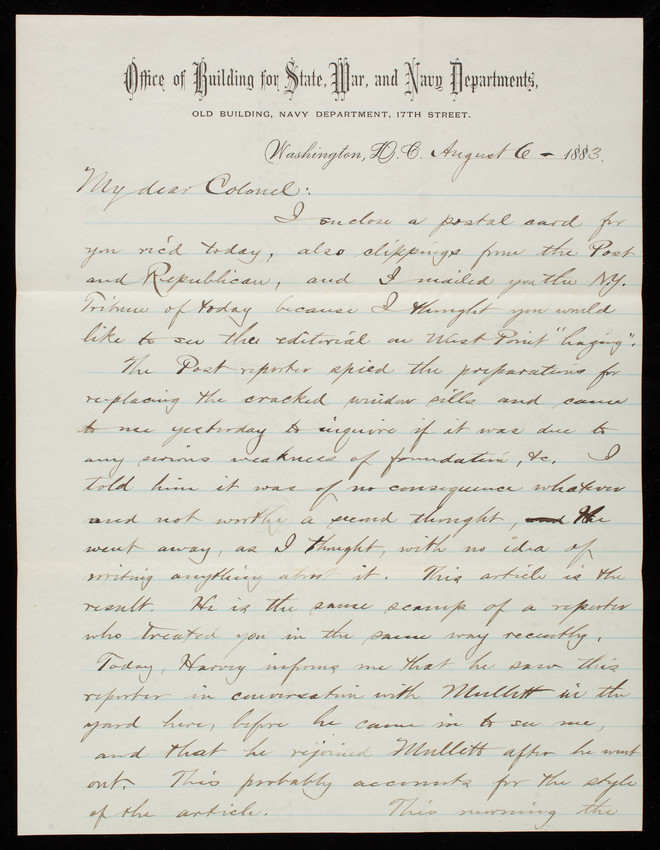 Office of Building for State, War, and Navy Departments,
OLD BUILDING, NAVY DEPARTMENT, 17TH STREET.
Washington, D. C. August 6 – 1883.
My dear Colonel:
I enclose a postal card for
you rec'd today, also clippings from the Post
and Republican, and I mailed you the N.Y.
Tribune of today because I thought you would
like to see the editorial on West Point "hazing".
The Post reporter spied the preparations for
replacing the cracked window sills and came
to me yesterday to inquire if it was due to
any serious weakness of foundation, &c. I
told him it was of no consequence whatever
and not worthy a second thought, and He
went away, as I thought, with no idea of
writing anything about it. This article is the
result. He is the same scamp of a reporter
who treated you in the same way recently.
Today, Harvey informs me that he saw this
reporter in conversation with Mullett in the
yard here, before he came in to see me,
and that he rejoined Mullett after he went
out. This probably accounts for the style
of the article. This morning the